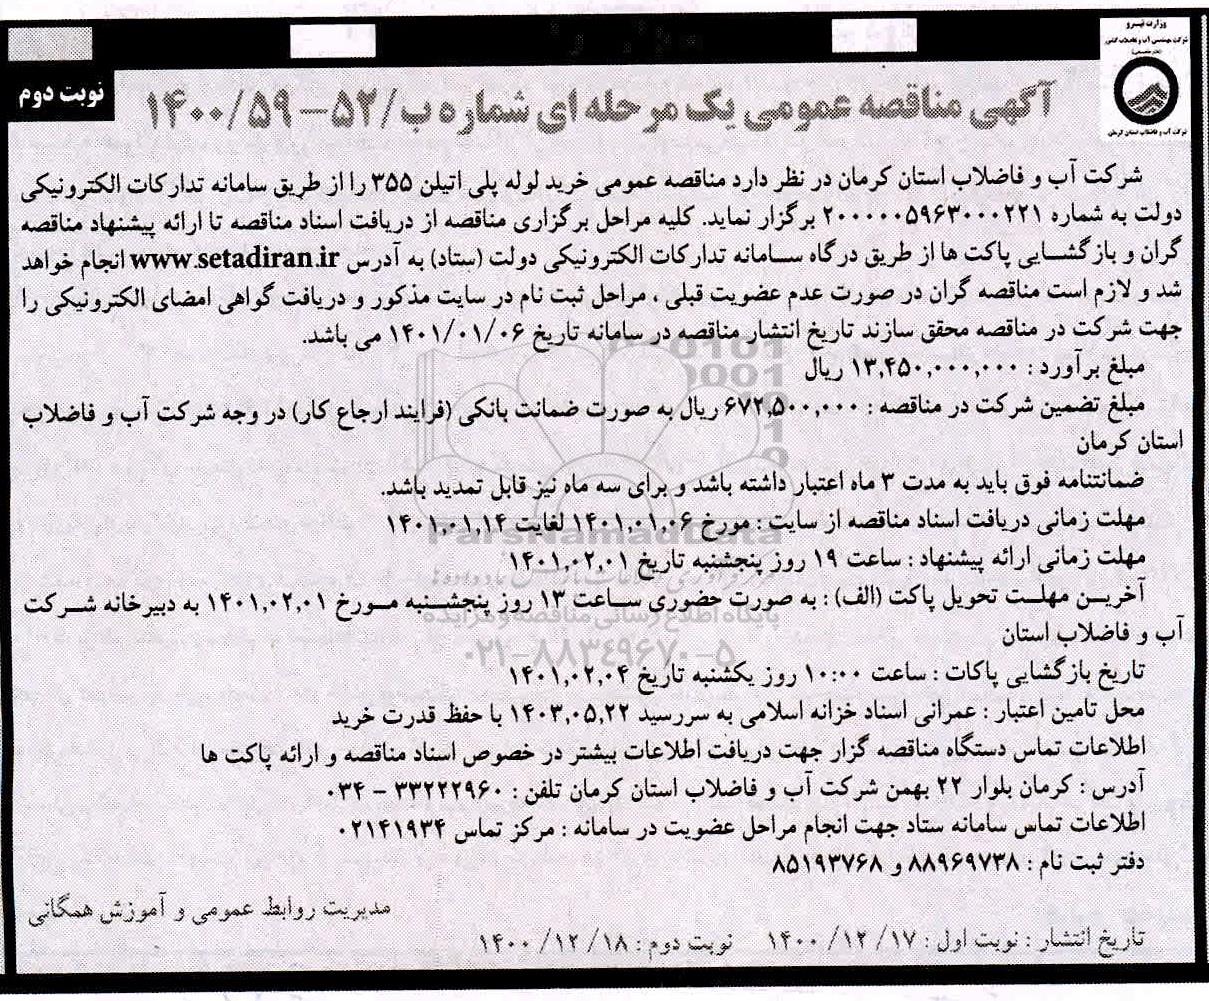 وزارت نیرو
شرکت مهندسی آب و فاضلاب کشور
شرکت آب و فاضلاب استان کرمان
نوبت دوم
آگهی مناقصه عمومی یک مرحله ای شماره ب/۵۲-۱۴۰۰/۵۹
شرکت آب و فاضلاب استان کرمان در نظر دارد مناقصه عمومی خرید لوله پلی اتیلن ۳۵۵ را از طریق سامانه تدارکات الکترونیکی
دولت به شماره ۲۰۰۰۰۰۵۹۶۳۰۰۰۲۲۱ برگزار نماید. کلیه مراحل برگزاری مناقصه از دریافت اسناد مناقصه تا ارائه پیشنهاد مناقصه
گران و بازگشایی پاکت ها از طریق درگاه سامانه تدارکات الکترونیکی دولت (ستاد) به آدرس www.setadiran.ir انجام خواهد
شد و لازم است مناقصه گران در صورت عدم عضویت قبلی ، مراحل ثبت نام در سایت مذکور و دریافت گواهی امضای الکترونیکی را
جهت شرکت در مناقصه محقق سازند تاریخ انتشار مناقصه در سامانه تاریخ ۱۴۰۱/۰۱/۰۶ می باشد.
مبلغ برآورد : ۱۳,۴۵۰,۰۰۰,۰۰۰ ریال
مبلغ تضمین شرکت در مناقصه : ۶۷۲,۵۰۰,۰۰۰ ریال به صورت ضمانت بانکی (فرایند ارجاع کار) در وجه شرکت آب و فاضلاب
استان کرمان
ضمانتنامه فوق باید به مدت ۳ ماه اعتبار داشته باشد و برای سه ماه نیز قابل تمدید باشد.
مهلت زمانی دریافت اسناد مناقصه از سایت : مورخ ۱۴۰۱,۰۱,۰۶ لغایت ۱۴۰۱,۰۱,۱۴
مهلت زمانی ارائه پیشنهاد : ساعت ۱۹ روز پنجشنبه تاریخ ۱۴۰۱,۰۲,۰۱
آخرین مهلت تحویل پاکت (الف) : به صورت حضوری ساعت ۱۳ روز پنجشنبه مورخ ۱۴۰۱,۰۲,۰۱ به دبیرخانه شرکت
آب و فاضلاب استان
تاریخ بازگشایی پاکات : ساعت ۱۰:۰۰ روز یکشنبه تاریخ ۱۴۰۱,۰۲,۰۴
محل تامین اعتبار : عمرانی اسناد خزانه اسلامی به سررسید ۱۴۰۳,۰۵,۲۲ با حفظ قدرت خرید
اطلاعات تماس دستگاه مناقصه گزار جهت دریافت اطلاعات بیشتر در خصوص اسناد مناقصه و ارائه پاکت ها
آدرس : کرمان بلوار ۲۲ بهمن شرکت آب و فاضلاب استان کرمان تلفن : ۳۳۲۲۲۹۶۰ - ۰۳۴
اطلاعات تماس سامانه ستاد جهت انجام مراحل عضویت در سامانه : مرکز تماس ۰۲۱۴۱۹۳۴
دفتر ثبت نام : ۸۸۹۶۹۷۳۸ و ۸۵۱۹۳۷۶۸
مدیریت روابط عمومی و آموزش همگانی
تاریخ انتشار : نوبت اول : ۱۷/ ۱۲/ ۱۴۰۰ نوبت دوم : ۱۸/ ۱۲/ ۱۴۰۰
ParsNamadData
پایگاه اطلاع رسانی مناقصه و مزایده
۰۲۱-۸۸۳۴۹۶۷۰-۵